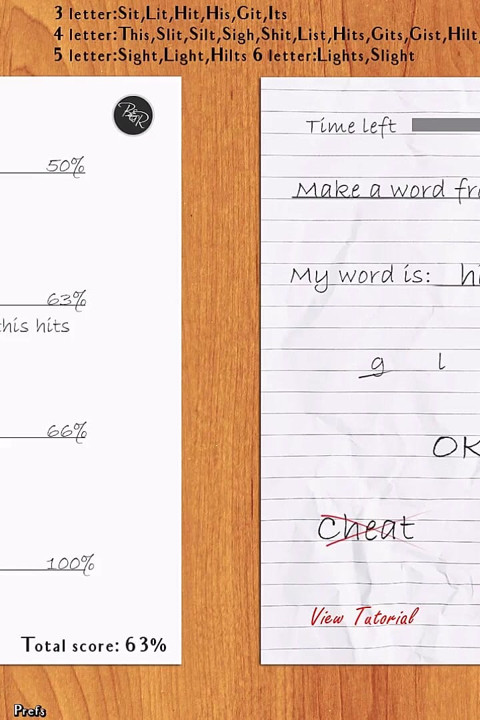 3 letter:Sit,Lit,Hit,His,Git,Its
4 letter:This,Slit,Silt,Sigh,Shit,List,Hits,Gits,Gist,Hilt,
5 letter:Sight,Light,Hilts 6 letter:Lights,Slight
B&R
50%
63%
this hits
66%
100%
Total score: 63%
Time left
Make a word fro
My word is: hi
g l
OK
Cheat
View Tutorial
Prefs